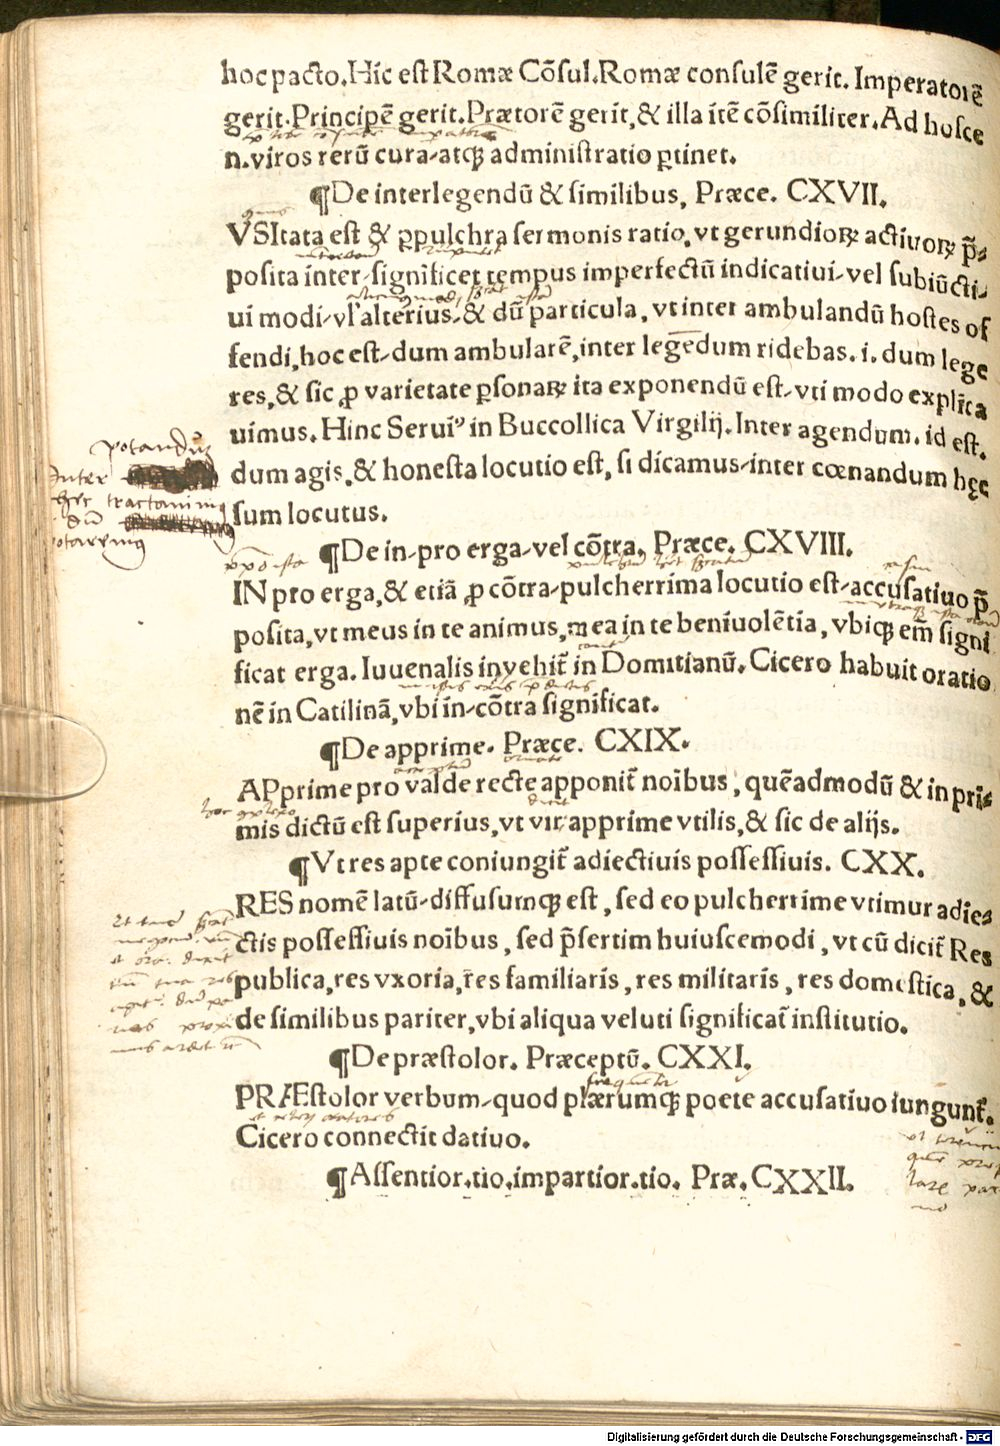 hoc pacto. Hic est Romæ Cõsul. Romæ consulẽ gerit. Imperatorẽ
gerit. Principẽ gerit. Prætorẽ gerit, & illa itẽ cõsimiliter. Ad hosce
n. viros rerũ cura-atqꝫ administratio ꝑtinet.
¶De interlegendũ & similibus, Præce. CXVII.
VSItata est & ꝓpulchra sermonis ratio, vt gerundioꝝ actiuoꝝ p̃-
posita inter-significet tempus imperfectũ indicatiui-vel subiũcti-
ui modi-vl' alterius-& dũ particula, vt inter ambulandũ hostes of
fendi, hoc est-dum ambularẽ, inter legẽdum ridebas. i. dum lege
res, & sic ꝓ varietate ꝑsonaꝝ ita exponendũ est-vti modo explica
uimus. Hinc Seruiꝰ in Buccollica Virgilij. Inter agendum. id est.
dum agis, & honesta locutio est, si dicamus-inter cœnandum hęc
potandũ
Inter
sum locutus.
¶De in-pro erga-vel cõtra, Præce. CXVIII.
IN pro erga, & etiã ꝓ cõtra-pulcherrima locutio est-accusatiuo p̃
posita, vt meus in te animus, mea in te beniuolẽtia, vbiqꝫ em̃ signi
ficat erga. Iuuenalis inuehit̃ in Domitianũ. Cicero habuit oratio
nẽ in Catilinã, vbi in-cõtra significat.
¶De apprime. Præce. CXIX.
APprime pro valde recte apponit̃ noĩbus, quẽadmodũ & in pri-
mis dictũ est superius, vt vir apprime vtilis, & sic de alijs.
¶Vt res apte coniungit̃ adiectiuis possessiuis. CXX.
RES nomẽ latũ-diffusumqꝫ est, sed eo pulcherrime vtimur adie-
ctis possessiuis noĩbus, sed p̃sertim huiuscemodi, vt cũ dicit̃ Res
publica, res vxoria, res familiaris, res militaris, res domestica, &
de similibus pariter, vbi aliqua veluti significat̃ institutio.
¶De præstolor. Præceptũ. CXXI.
PRÆstolor verbum-quod plærumqꝫ poete accusatiuo iungunt̃.
Cicero connectit datiuo.
¶Assentior.tio.impartior.tio. Præ. CXXII.
Digitalisierung gefördert durch die Deutsche Forschungsgemeinschaft - DFG